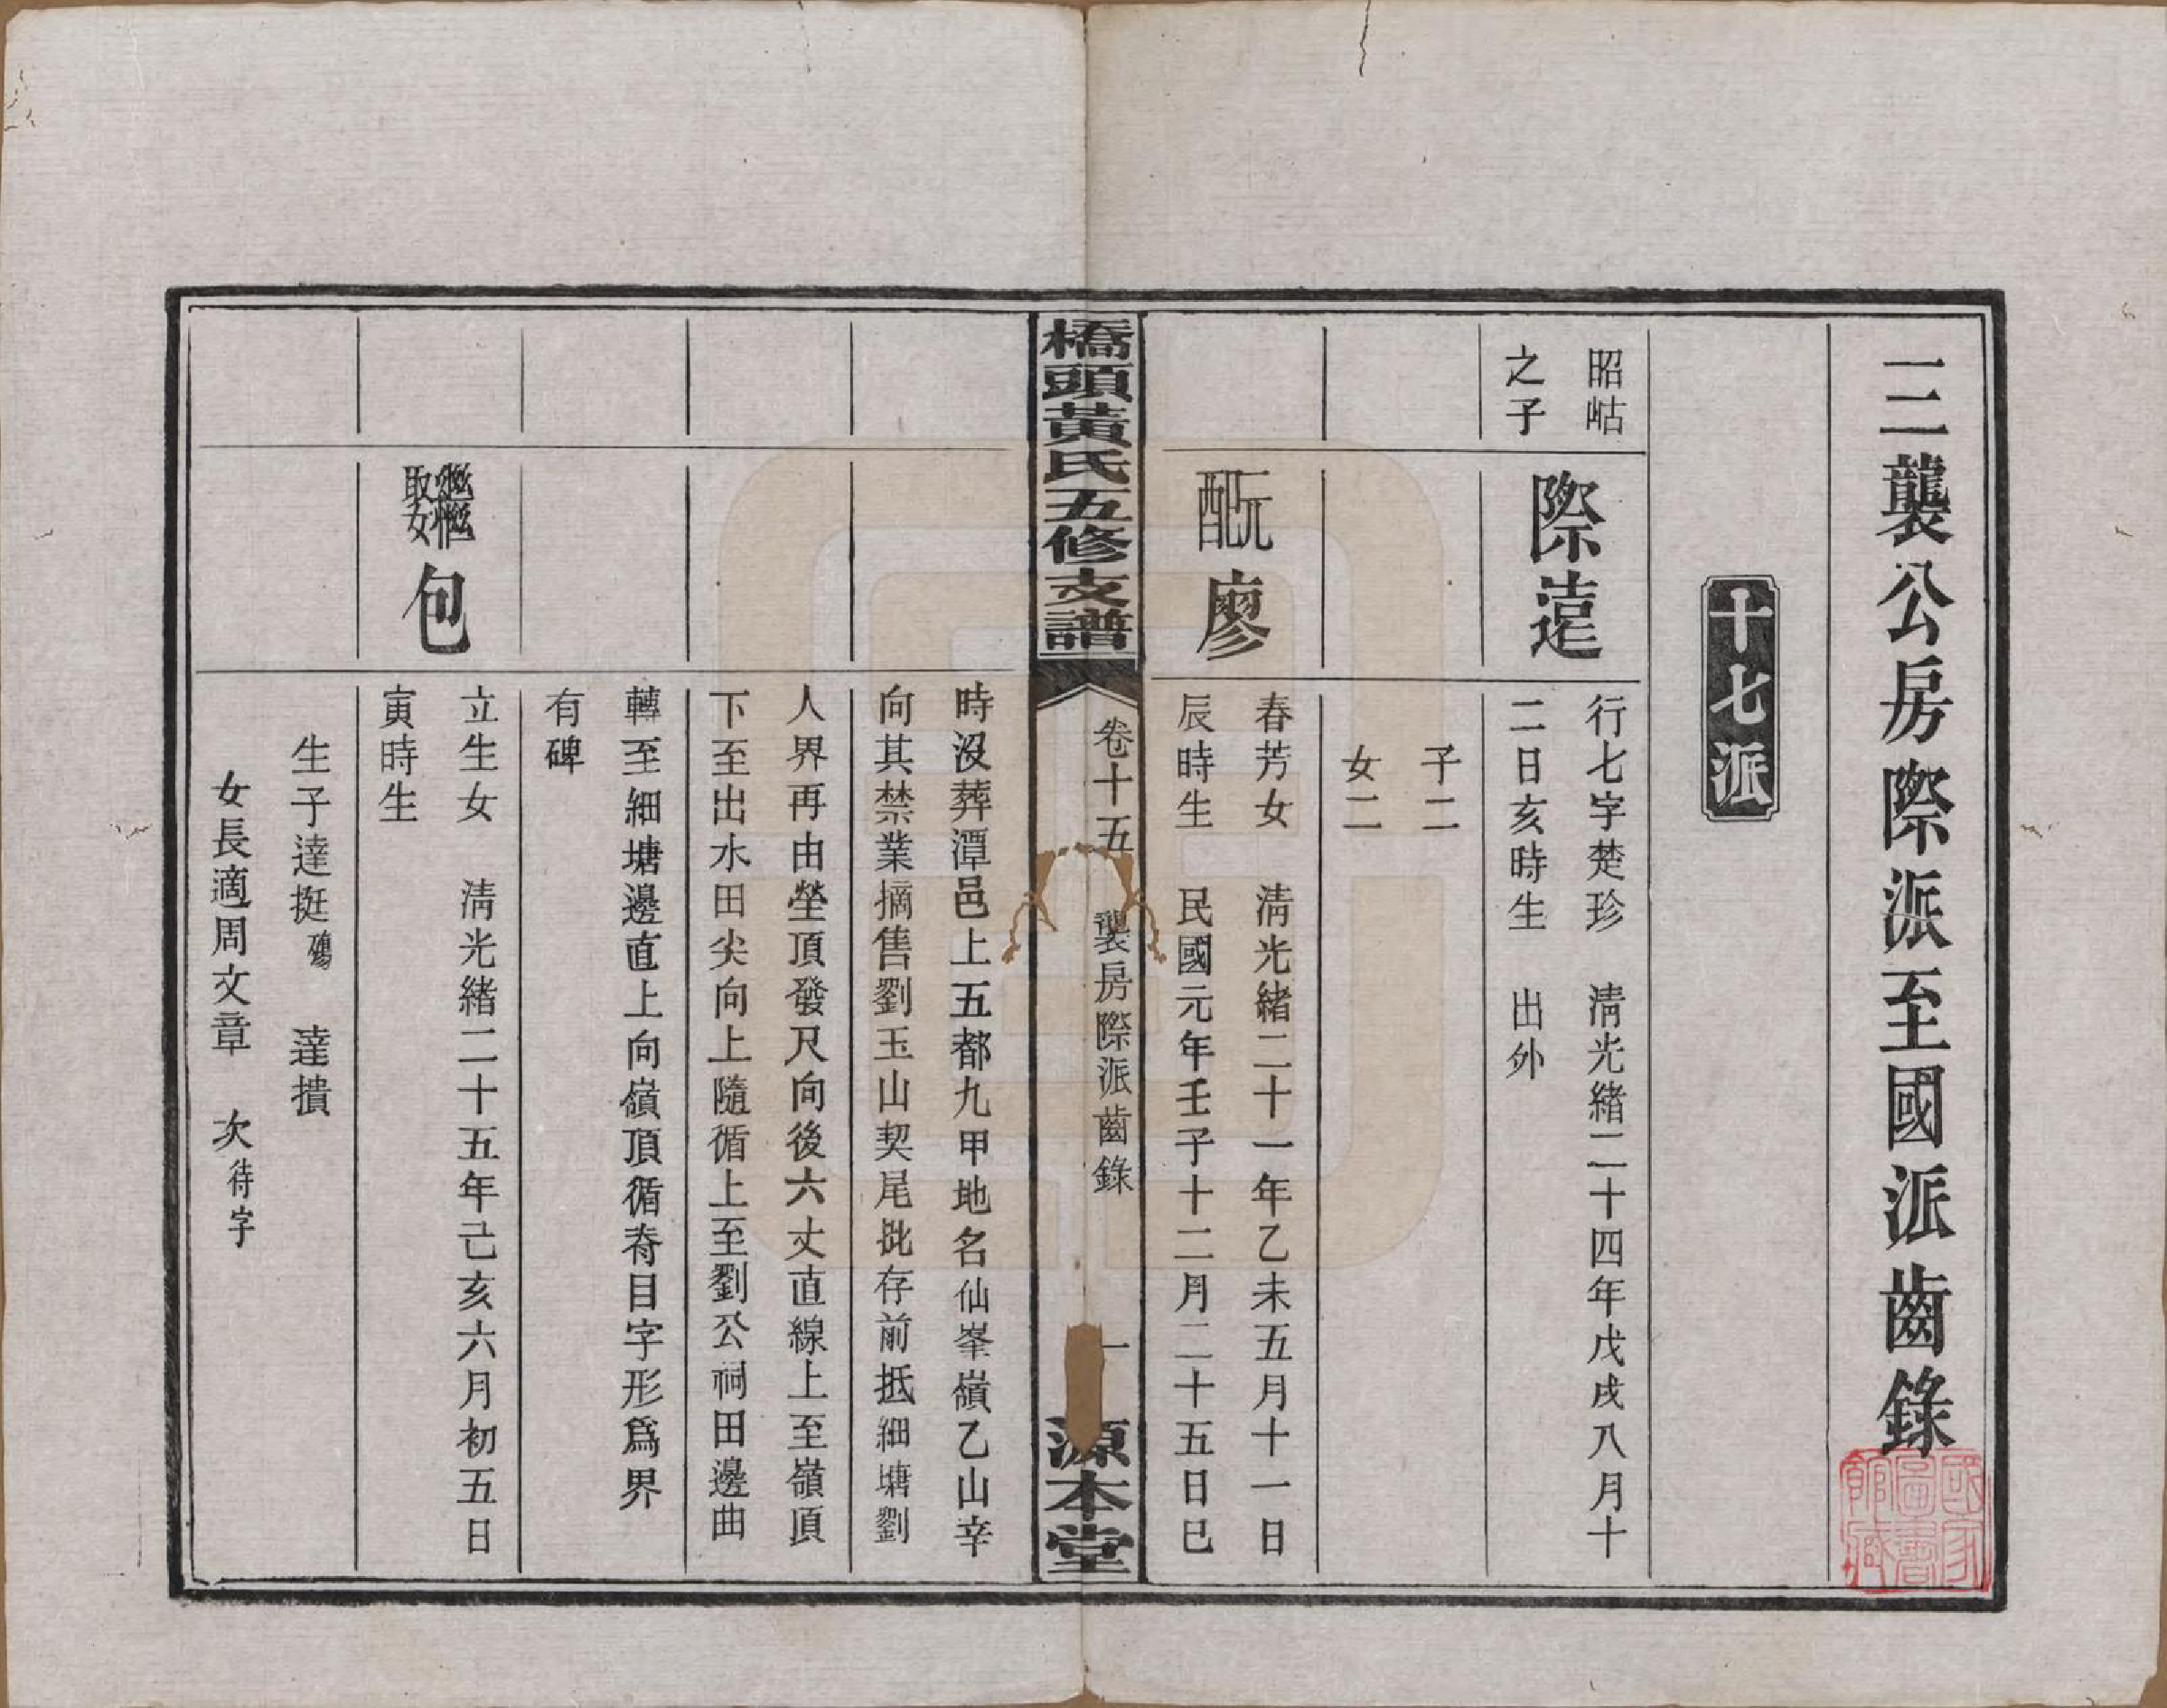 三襲公房際派至國派齒錄
十七派
昭岵
之子
際遠
行七字楚珍　淸光緒二十四年戊戌八月十
二日亥時生　出外
子二
女二
配元
廖
春芳女　淸光緒二十一年乙未五月十一日
辰時生　民國元年壬子十二月二十五日巳
橋頭黃氏五修支譜
卷十五　襲房際派齒錄
一
源本堂
時沒葬潭邑上五都九甲地名仙峯嶺乙山辛
向其禁業摘售劉玉山契尾批存前抵細塘劉
人界再由塋頂發尺向後六丈直線上至嶺頂
下至出水田尖向上隨循上至劉公祠田邊曲
轉至細塘邊直上向嶺頂循脊目字形爲界
有碑
繼娶
包
立生女　淸光緒二十五年己亥六月初五日
寅時生
生子達挺殤　達摜
女長適周文章　次待字
國家圖書館藏